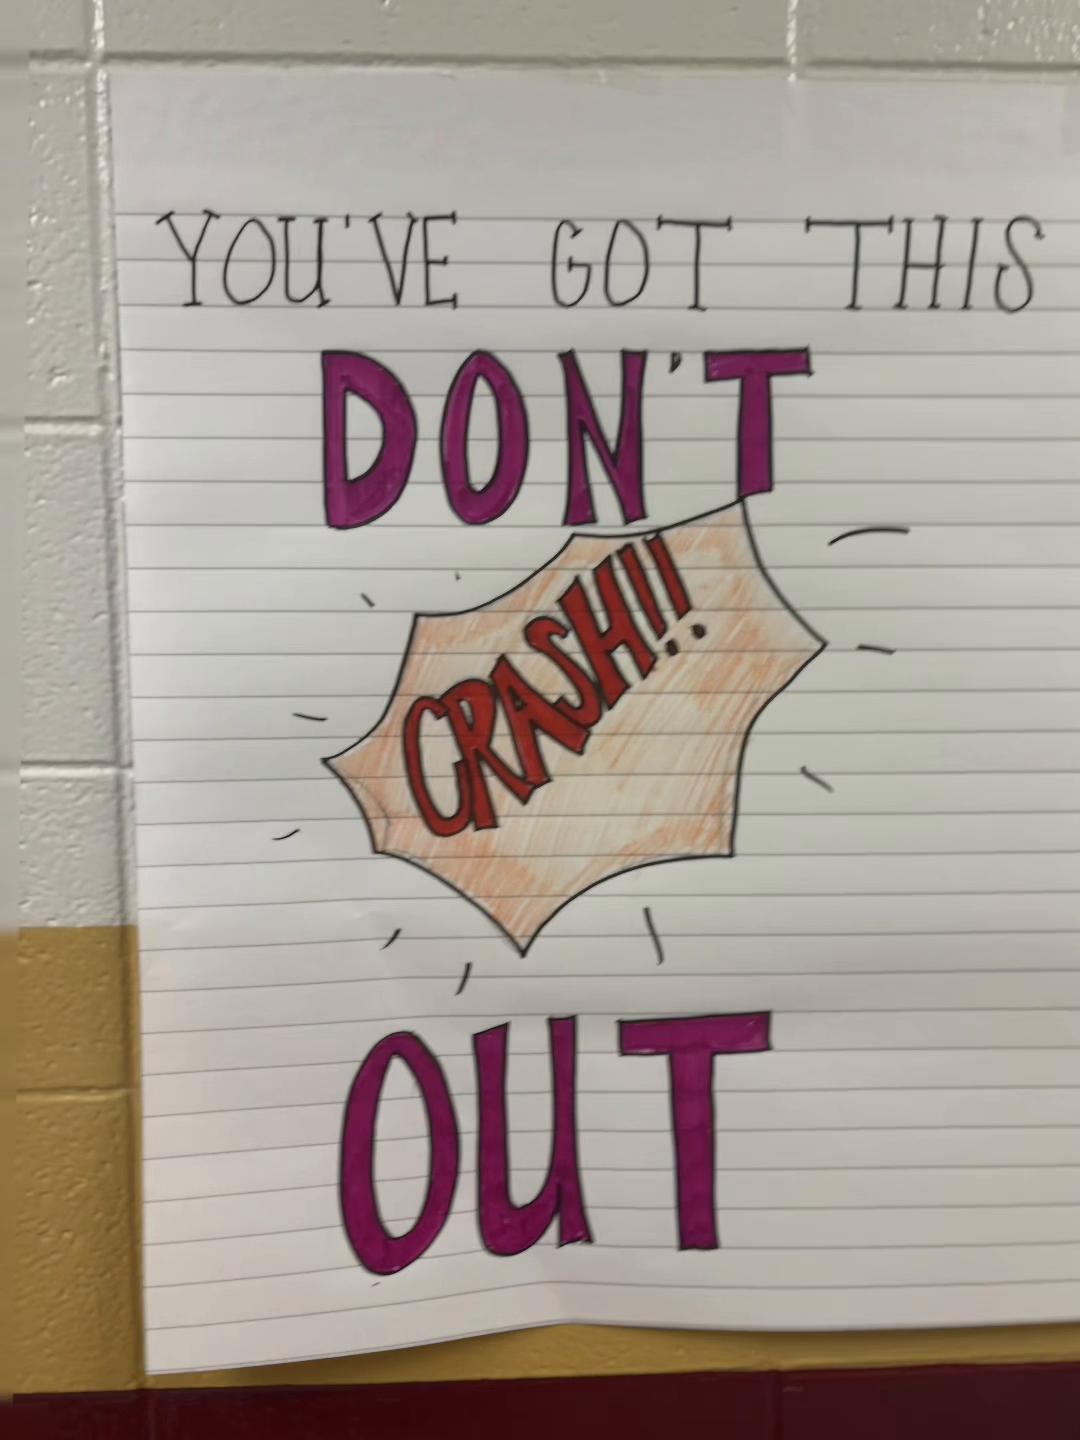 YOU'VE GOT THIS
DON'T
CRASH!!
OUT